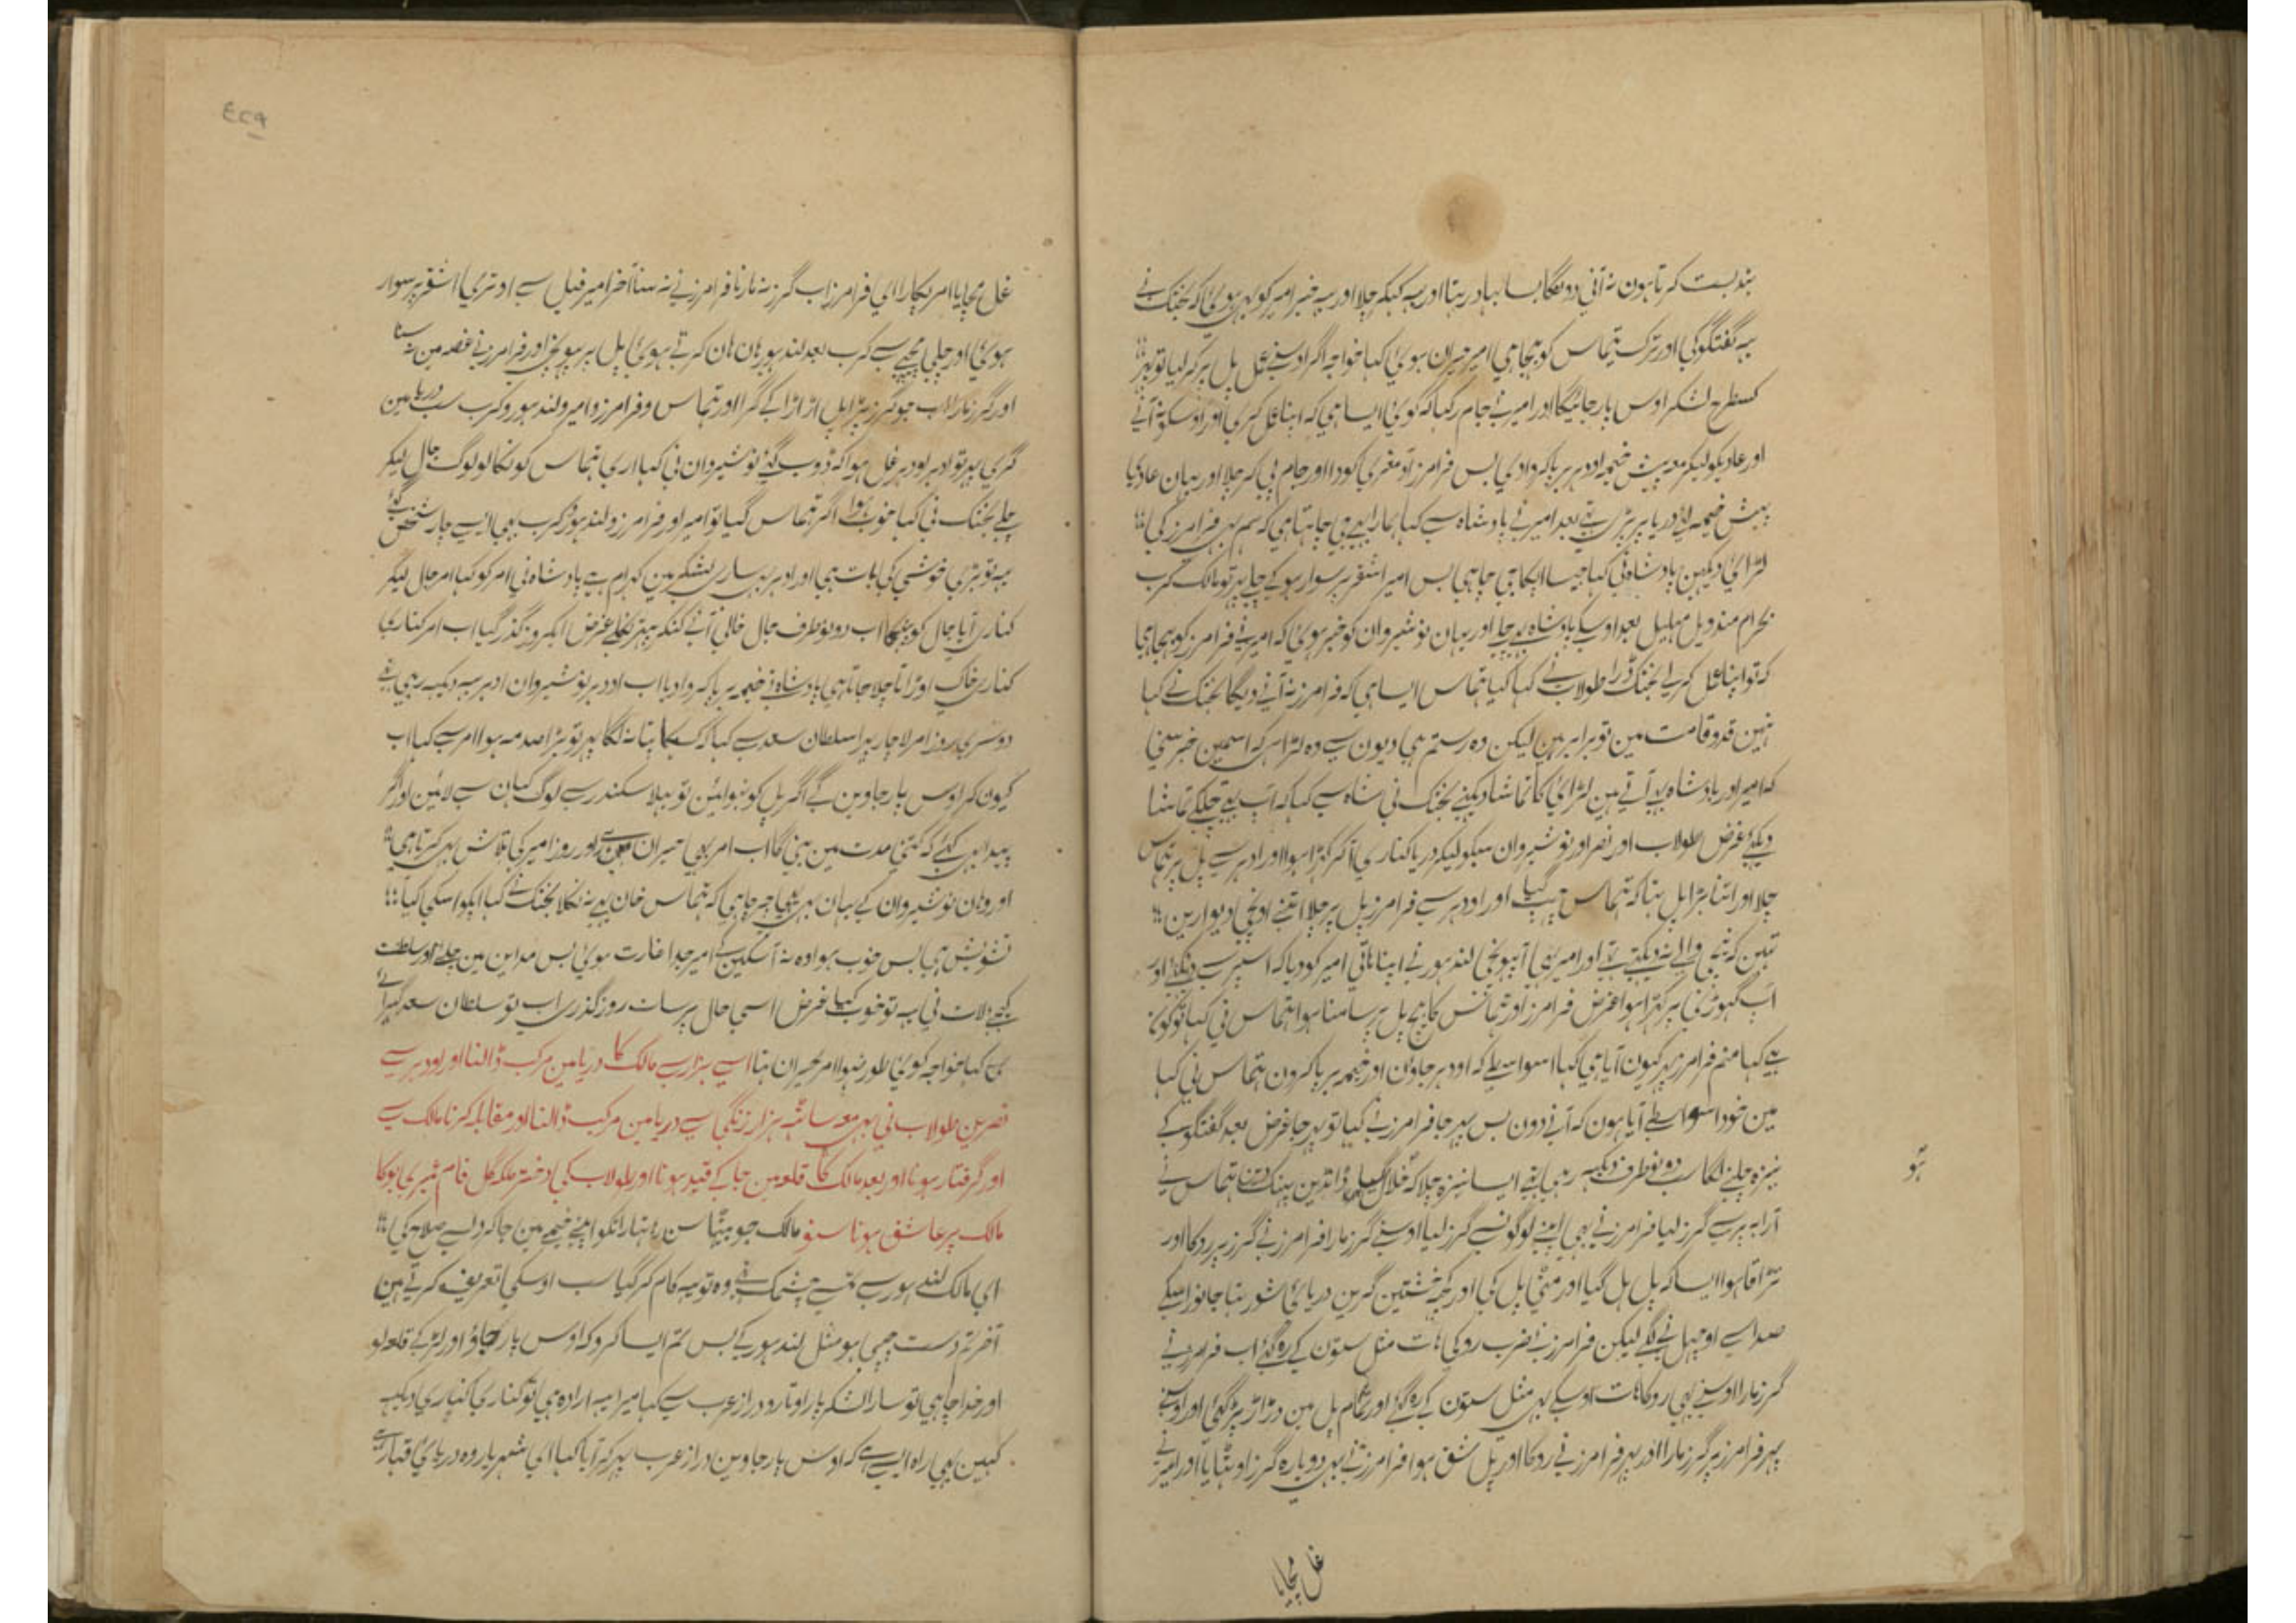 بندبست کرتا ہون نہ آنی دونگا بہادر ہتا اور یہ کہکر چلا اور یہ خبر امیر کو بہی ہوئی کہ بختک نے
یہ گفتگو کی اور ترک تہماس کو بہیجا ہی امیر حیران ہوئی کہا خواجہ اگر اوسنے عمل پل پر کر لیا تو پہر
کسطرح لشکر اوس پار جائیگا اور امیر نے جام رکہا کہ کوئی ایسا ہی کہ اپنا عمل کری اور اوسکو نہ آنے
اور عادیکو لیکر معہ پیش خیمہ اودہر برپا کروا دی بس فرامرز آد مغربی کودا اور جام پی کر چلا اور یہان عادیکا
پیش خیمہ لا دریا پر بعد امیر نے بادشاہ سے کہا ہمارا بہی جی چاہتا ہی کہ ہم بہی فرامرز کی
لڑائی دیکہین بادشاہ نی کہا جیسا آپکا جی چاہی بس امیر اشقر پر سوار ہوکے چلے پہر تو مالک کرب
بہرام مندویل بعد اوسکے بادشاہ بہی چلے اور یہان نوشیروان کو خبر ہوئی کہ امیر نے فرامرز کو بہیجا ہی
کہ تو اپنا عمل کر لے بختک ڈرا طولاب نے کہا کیا تہماس ایسا ہی کہ فرامرز نہ آنے دیگا بختک نے کہا
نہین قد و قامت مین تو برابر ہین لیکن وہ رستم ہی دیون سے وہ لڑا ہی کہ اسمین خبر سنی
کہ امیر اور بادشاہ بہی آتے ہین لڑائی کا تماشا دیکہنے بختک نی شاہ سے کہا کہ آپ بہی چلکے تماشا
دیکہئے غرض طولاب اور نصر اور نوشیروان سبکو لیکر دریا کناری آ کر کہڑا ہوا اور ادہر سے پل پر تہماس
چلا اور اتنا بڑا پل بنا کہ تہماس چہپ گیا اور اودہر سے فرامرز پل پر چلا اتنے اونچی دیوارین
تہین کہ نیچی والے نہ دیکہتے تہے اور امیر بہی آ پہونچی لندہور نے اپنا ہاتی امیر کو دیا کہ اسپر سے دیکہئے اور
آپ گہوڑی پر کہڑا ہوا غرض فرامرز اور تہماس کا بیچ پل پر سامنا ہوا تہماس نی کہا تو کون
ہے کہا منم فرامرز پہر کیون آیا ہی کہا اسواسطے کہ اودہر جاؤن اور خیمہ برپا کرون تہماس نی کہا
مین خود اسواسطے آیا ہون کہ آنے دون بس پہر جا فرامرز نے کہا تو پہر جا غرض بعد گفتگو کے
نیزہ چلنے لگا سب دو نو طرف دیکہہ رہی تہے ایسا نیزہ چلا کہ خلال ڈانڈین پہینک دین تہماس نے
ارابہ پر سے گرز لیا فرامرز نے بہی اپنے لوگونسے گرز لیا اوسنے گرز مارا فرامرز نے گرز پر روکا اور
تڑاقا ہوا ایسا کہ پل ہل گیا اور مٹی پل کی اور کچہہ خشتین گرین دریائی شور تہا جانور اسکے
صدا سے اوچہلنے لگے لیکن فرامرز نے ضرب روکی ہات مثل ستون کے رہ گئے اب فرامرز نے
گرز مارا اوسنے بہی روکا ہات اوسکے بہی مثل ستون کے رہ گئے اور تمام پل مین دڑاڑ پڑ گئی اور اوسنے
پہر فرامرز پر گرز مارا اور پہر فرامرز نے روکا اور پل شق ہوا فرامرز نے بہی دوبارہ گرز اوٹہایا اور امیر نے
غل مچایا
غل مچایا امر پکارا ای فرامرز اب گرز نہ مارنا فرامرز نے نہ سنا آخر امیر فیل سے اوتری اشقر پر سوار
ہوئی اور چلی پیچہے سے کرب بعد لندہور ہان ہان کرتے ہوئی پل پر پہونچی اور فرامرز نے غصہ مین نہ سنا
اور گرز مارا اب جو گرز پڑا پل اڑاڑا کے گرا اور تہماس و فرامرز و امیر و لندہور و کرب سب دریا مین
گری پہر تو ادہر اودہر غل ہوا کہ ڈوب گئے نوشیروان نی کہا ارے تہماس کو نکالو لوگ جال لیکر
چلے بختک نی کہا خوب ہوا اگر تہماس گیا تو امیر اور فرامرز و لندہور و کرب بہی ایسے چار شخص گئے
یہ تو بڑی خوشی کی بات ہی اور ادہر ساری لشکر مین کہرام ہے بادشاہ نی امر کو کہا امر جال لیکر
کناری آیا جال کو پہینکا اب دونو طرف جال خالی آنے لگے غرض ایکروز گذر گیا اب امر کناری
کناری خاک اوڑاتا چلا جاتا ہی بادشاہ نے خیمہ برپا کروا دیا اب اودہر نوشیروان ادہر یہ دیکہہ رہی تہے
دوسری روز امر لاچار پہرا سلطان سعد سے کہا کہ کسیکا پتا نہ لگا پہر تو بڑا صدمہ ہوا امر سے کہا اب
کیون کر اوس پار جاوین گے اگر پل کو بنوائین تو بہلا سکندر سے لوگ کہان سے لائین اور اگر
پیدا بہی کئے کہ کتنی مدت مین بنی گا اب امر بہی حیران ہین اور روز امیر کی تلاش بہی کرتا ہی
اور وہان نوشیروان کے یہان بہی یہی چرچا ہی کہ تہماس خان بہی نہ نکلا بختک نے کہا آپکو اسکی کیا
تشویش ہی بس خوب ہوا وہ نہ آ سکین گے امیر جدا غارت ہوئی بس مداین مین چلئے اور سلطنت
کیجئے لات نی یہ تو خوب کیا غرض اسی حال پر سات روز گذری اب تو سلطان سعد گہبرائے
کہا خواجہ کوئی طور نہوا امر حیران تہا اسے ہزار سے مالک کا دریا مین مرکب ڈالنا اور اودہر سے
نصر بن طولاب نی بہی معہ ساٹہہ ہزار زنگی سے دریا مین مرکب ڈالنا اور مقابلہ کرنا مالک سے
اور گرفتار ہونا اور بعد مالک کا قلعہ مین جا کے قید ہونا اور طولاب کی دختر ملکہ گل فام شیرین بو کا
مالک پر عاشق ہونا سنو مالک جو بیٹہا سن رہا تہا رات کو اپنے خیمہ مین جا کر دل سے صلاح کی
ای مالک لندہور سے تجہسے چشمک تہی وہ تو یہ کام کر گیا سب اوسکی تعریف کرتے ہین
آخر تم دست چپی ہو مثل لندہور کے بس تم ایسا کرو کہ اوس پار جاؤ اور لڑ کے قلعہ لو
اور خدا چاہی تو سارا لشکر پار اوتارو دراز عرب سے کہا میرا یہ ارادہ ہی تو کناری کناری دیکہہ
کہین بہی راہ ایسی ہے کہ اوس پار جاوین دراز عرب پہر کر آیا کہا ای شہریار وہ دریای قہار ہے